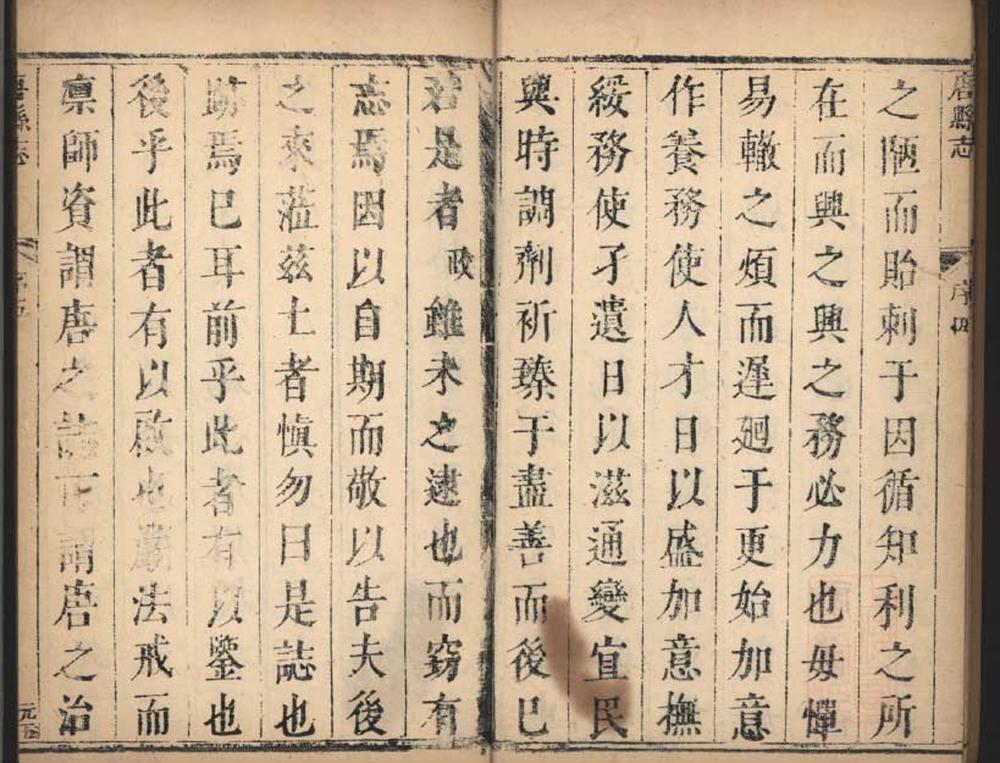 唐縣志
序四
之陋而貽刺于因循知利之所
在而興之興之務必力也毋憚
易轍之煩而遲廻于更始加意
作養務使人才日以盛加意撫
綏務使孑遺日以滋通變宜民
與時調劑祈臻于盡善而後已
若是者政雖未之逮也而竊有
志焉因以自期而敬以告夫後
之來蒞茲土者慎勿曰是誌也
跡焉已耳前乎此者有以鑒也
後乎此者有以啟也嚴法戒而
凛師資謂唐之誌可謂唐之治
唐縣志